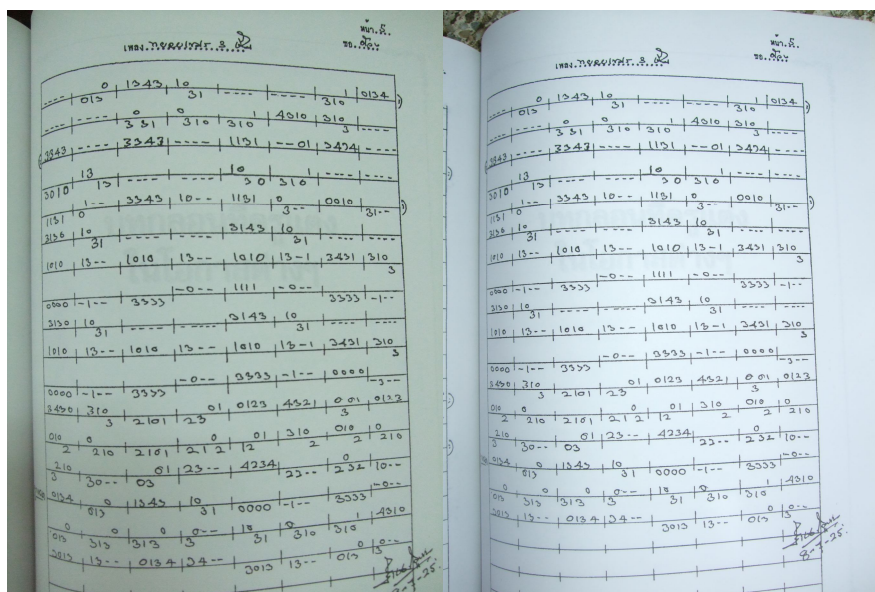 หน้า
เพลง ทยอยเขมร 3 ชั้น
ซอ ด้วง
---- | 0 013 | 1343 | 10 31 | ---- | ---- | 1 310 | 0134
---- | ---- | 0 331 | 0 310 | 1 310 | 4310 | 310 3 | ----
3343 | ---- | 3343 | ---- | 1131 | --01 | 3434 | ----
3010 | 13 13 | ---- | ---- | 10 30 | 1 310 | ---- | ----
1131 | 1-- 0 | 3343 | 10-- | 1131 | 0 3-- | 0010 | 31--
3130 | 10 31 | ---- | ---- | 3143 | 10 31 | ---- | ----
1010 | 13-- | 1010 | 13-- | 1010 | 13-1 | 3431 | 310 3
0000 | -1-- | 3333 | -0-- | 1111 | -0-- | 3333 | -1--
3130 | 10 31 | ---- | ---- | 3143 | 10 31 | ---- | ----
1010 | 13-- | 1010 | 13-- | 1010 | 13-1 | 3431 | 310 3
0000 | -1-- | 3333 | -0-- | 3333 | -1-- | 0000 | -3--
3430 | 310 3 | 2101 | 01 23 | 0123 | 4321 | 001 3 | 0123
010 2 | 0 210 | 2101 | 0 212 | 01 12 | 310 2 | 010 2 | 0 210
210 3 | 30-- | 01 03 | 23-- | 4234 | 23-- | 0 232 | 10--
0134 | 0 013 | 1343 | 10 31 | 0000 | -1-- | 3333 | -0--
0 013 | 0 313 | 0 313 | 0-- 3 | 10 31 | 0 310 | 1 310 | 4310
3013 | 13-- | 0134 | 34-- | 3013 | 13-- | 0 013 | 0-- 3
หน้า
เพลง ทยอยเขมร 3 ชั้น
ซอ ด้วง
---- | 0 013 | 1343 | 10 31 | ---- | ---- | 1 310 | 0134
---- | ---- | 0 331 | 0 310 | 1 310 | 4310 | 310 3 | ----
3343 | ---- | 3343 | ---- | 1131 | --01 | 3434 | ----
3010 | 13 13 | ---- | ---- | 10 30 | 1 310 | ---- | ----
1131 | 1-- 0 | 3343 | 10-- | 1131 | 0 3-- | 0010 | 31--
3130 | 10 31 | ---- | ---- | 3143 | 10 31 | ---- | ----
1010 | 13-- | 1010 | 13-- | 1010 | 13-1 | 3431 | 310 3
0000 | -1-- | 3333 | -0-- | 1111 | -0-- | 3333 | -1--
3130 | 10 31 | ---- | ---- | 3143 | 10 31 | ---- | ----
1010 | 13-- | 1010 | 13-- | 1010 | 13-1 | 3431 | 310 3
0000 | -1-- | 3333 | -0-- | 3333 | -1-- | 0000 | -3--
3430 | 310 3 | 2101 | 01 23 | 0123 | 4321 | 001 3 | 0123
010 2 | 0 210 | 2101 | 0 212 | 01 12 | 310 2 | 010 2 | 0 210
210 3 | 30-- | 01 03 | 23-- | 4234 | 23-- | 0 232 | 10--
0134 | 0 013 | 1343 | 10 31 | 0000 | -1-- | 3333 | -0--
0 013 | 0 313 | 0 313 | 0-- 3 | 10 31 | 0 310 | 1 310 | 4310
3013 | 13-- | 0134 | 34-- | 3013 | 13-- | 0 013 | 0-- 3